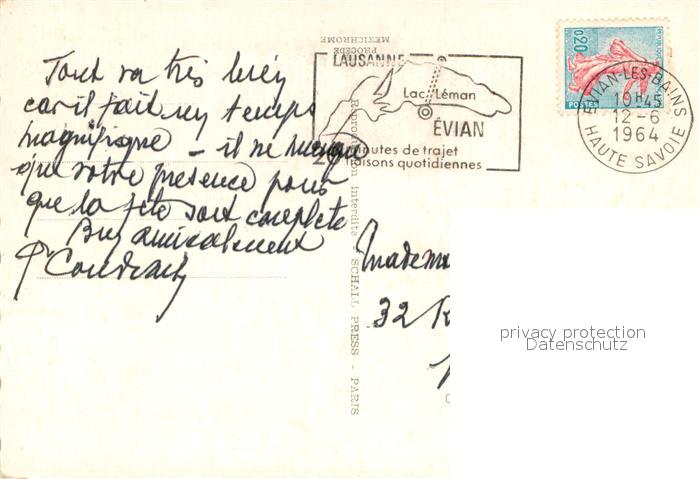 Tout va très bien
car il fait un temps
magnifique — il ne manque
que votre présence pour
que la fête soit complète
Bien amicalement
PROCÉDÉ
MEXICHROME
LAUSANNE
Lac Léman
ÉVIAN
minutes de trajet
liaisons quotidiennes
0,20
POSTES
EVIAN-LES-BAINS
10H45
12-6
1964
HAUTE SAVOIE
Reproduction interdite SCHALL PRESS - PARIS
Madem
32 R
privacy protection
Datenschutz